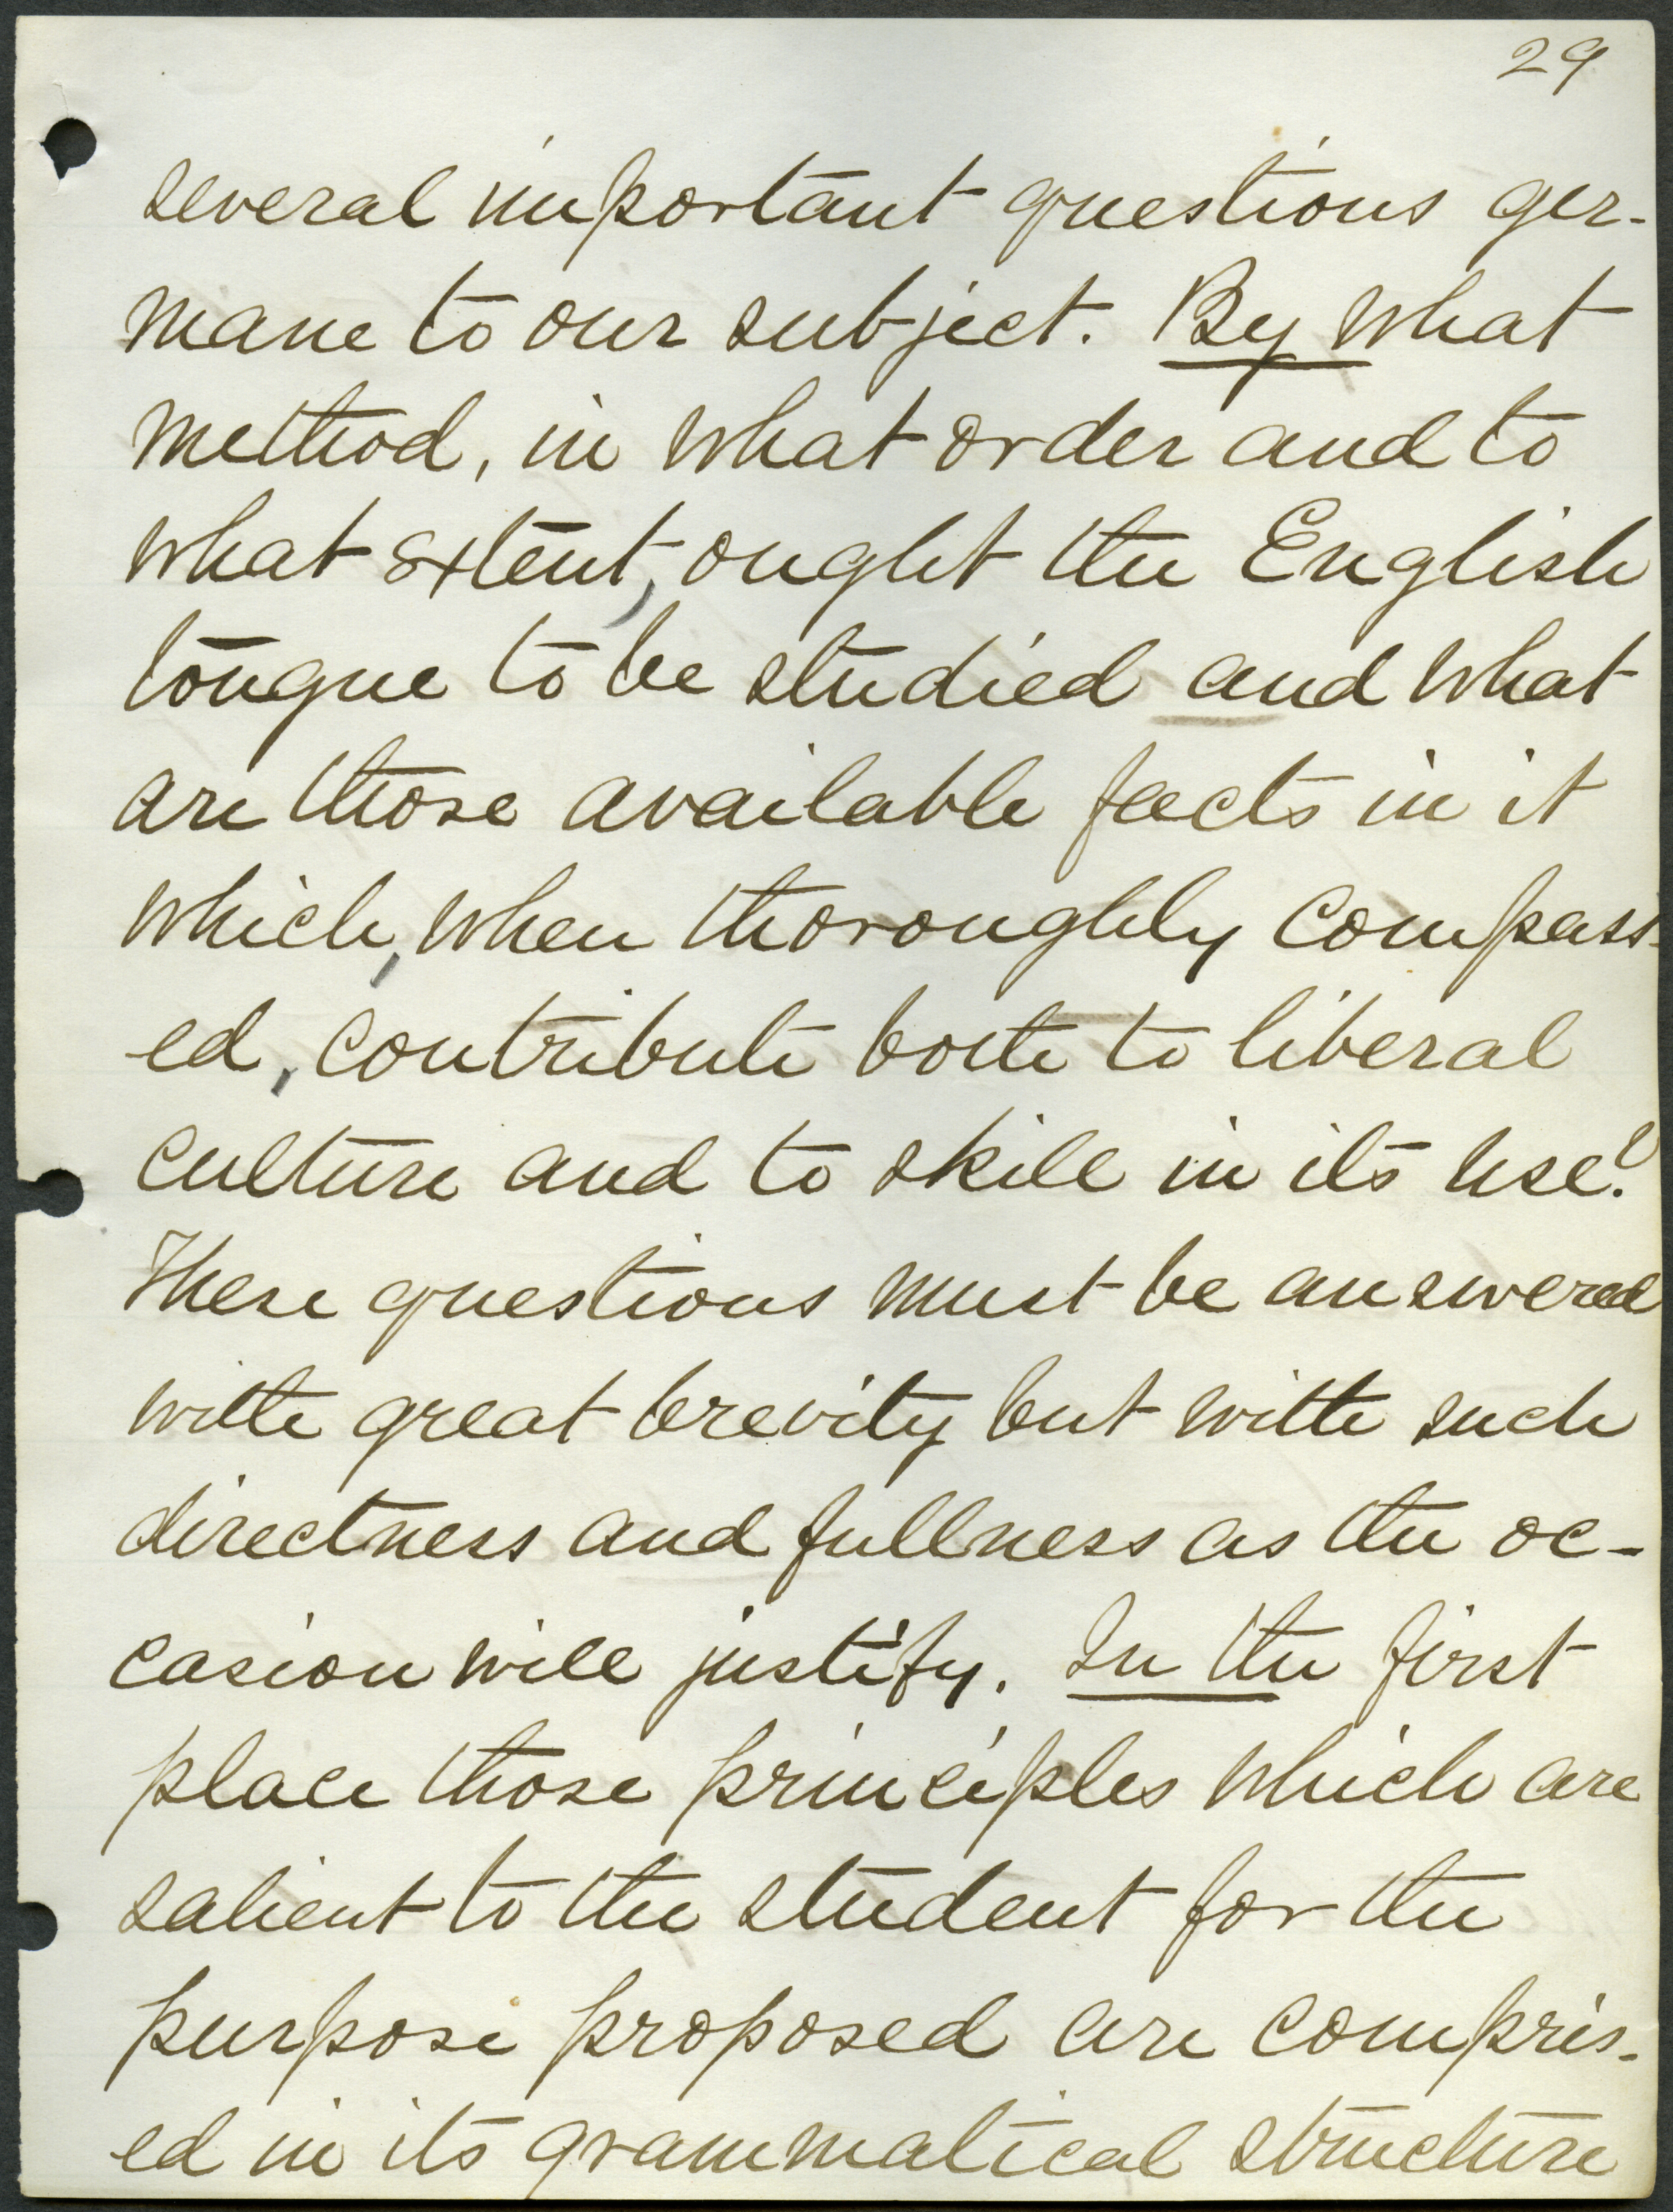 29
several important questions ger-
mane to our subject. By what
method, in what order and to
what extent, ought the English
tongue to be studied and what
are those available facts in it
which, when thoroughly compass-
ed, contribute both to liberal
culture and to skill in its use?
These questions must be answered
with great brevity but with such
directness and fullness as the oc-
casion will justify. In the first
place those principles which are
salient to the student for the
purpose proposed are compris-
ed in its grammatical structure